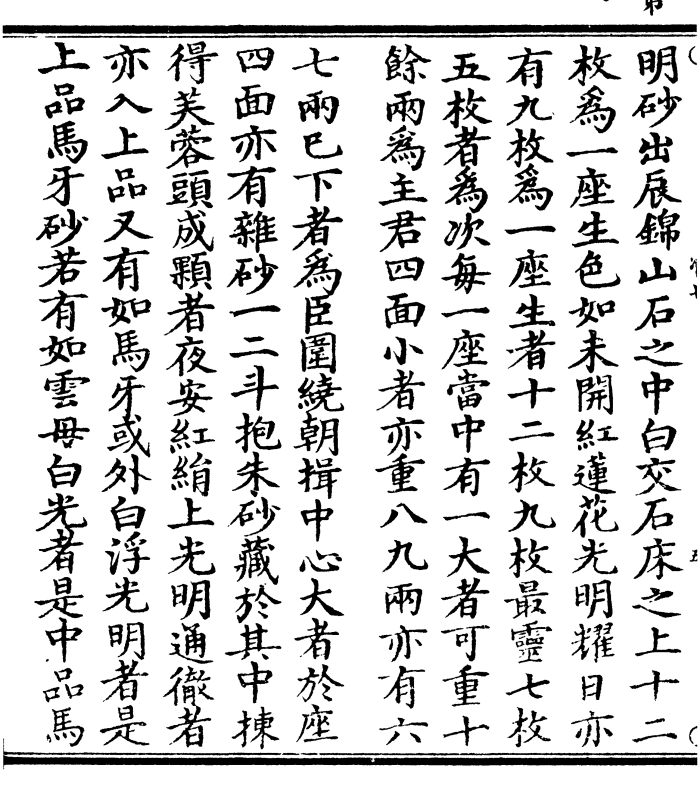 明砂出辰錦山石之中白交石床之上十二
枚爲一座生色如未開紅蓮花光明耀日亦
有九枚爲一座生者十二枚九枚最靈七枚
五枚者爲次每一座當中有一大者可重十
餘兩爲主君四面小者亦重八九兩亦有六
七兩已下者爲臣圍繞朝揖中心大者於座
四面亦有雜砂一二斗抱朱砂藏於其中揀
得芙蓉頭成顆者夜安紅絹上光明通徹者
亦入上品又有如馬牙或外白浮光明者是
上品馬牙砂若有如雲母白光者是中品馬